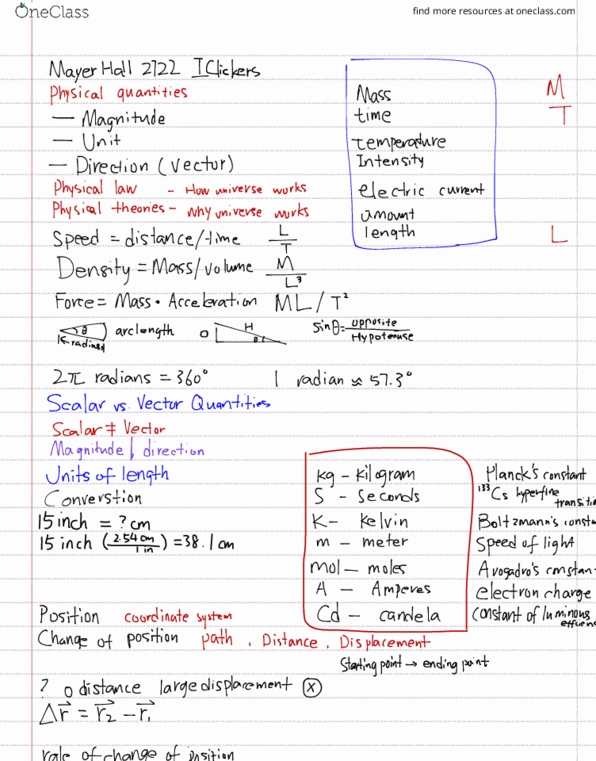 OneClass
find more resources at oneclass.com
Mayer Hall 2722 IClickers
Physical quantities
— Magnitude
— Unit
— Direction (Vector)
Physical law - How universe works
Physical theories - why universe works
Mass M
time T
temperature
Intensity
electric current
amount
length L
Speed = distance/time L/T
Density = Mass/volume M/L³
Force = Mass · Acceleration ML/T²
θ arclength O H θ sinθ = opposite/Hypotenuse
2π radians = 360° 1 radian ≈ 57.3°
Scalar vs. Vector Quantities
Scalar ≠ Vector
Magnitude | direction
Units of length
Converstion
15 inch = ? cm
15 inch (2.54 cm/1 in) = 38.1 cm
kg - Kilogram Planck's constant
S - Seconds ¹³³Cs hyperfine transiti
K - kelvin Boltzmann's consta
m - meter Speed of light
mol - moles Avogadro's constan
A - Amperes electron charge
Cd - candela constant of luminous
Position coordinate system
Change of position path , Distance , Displacement
Starting point → ending point
? 0 distance large displacement ⓧ
Δr⃗ = r⃗₂ - r⃗₁
rate of change of position